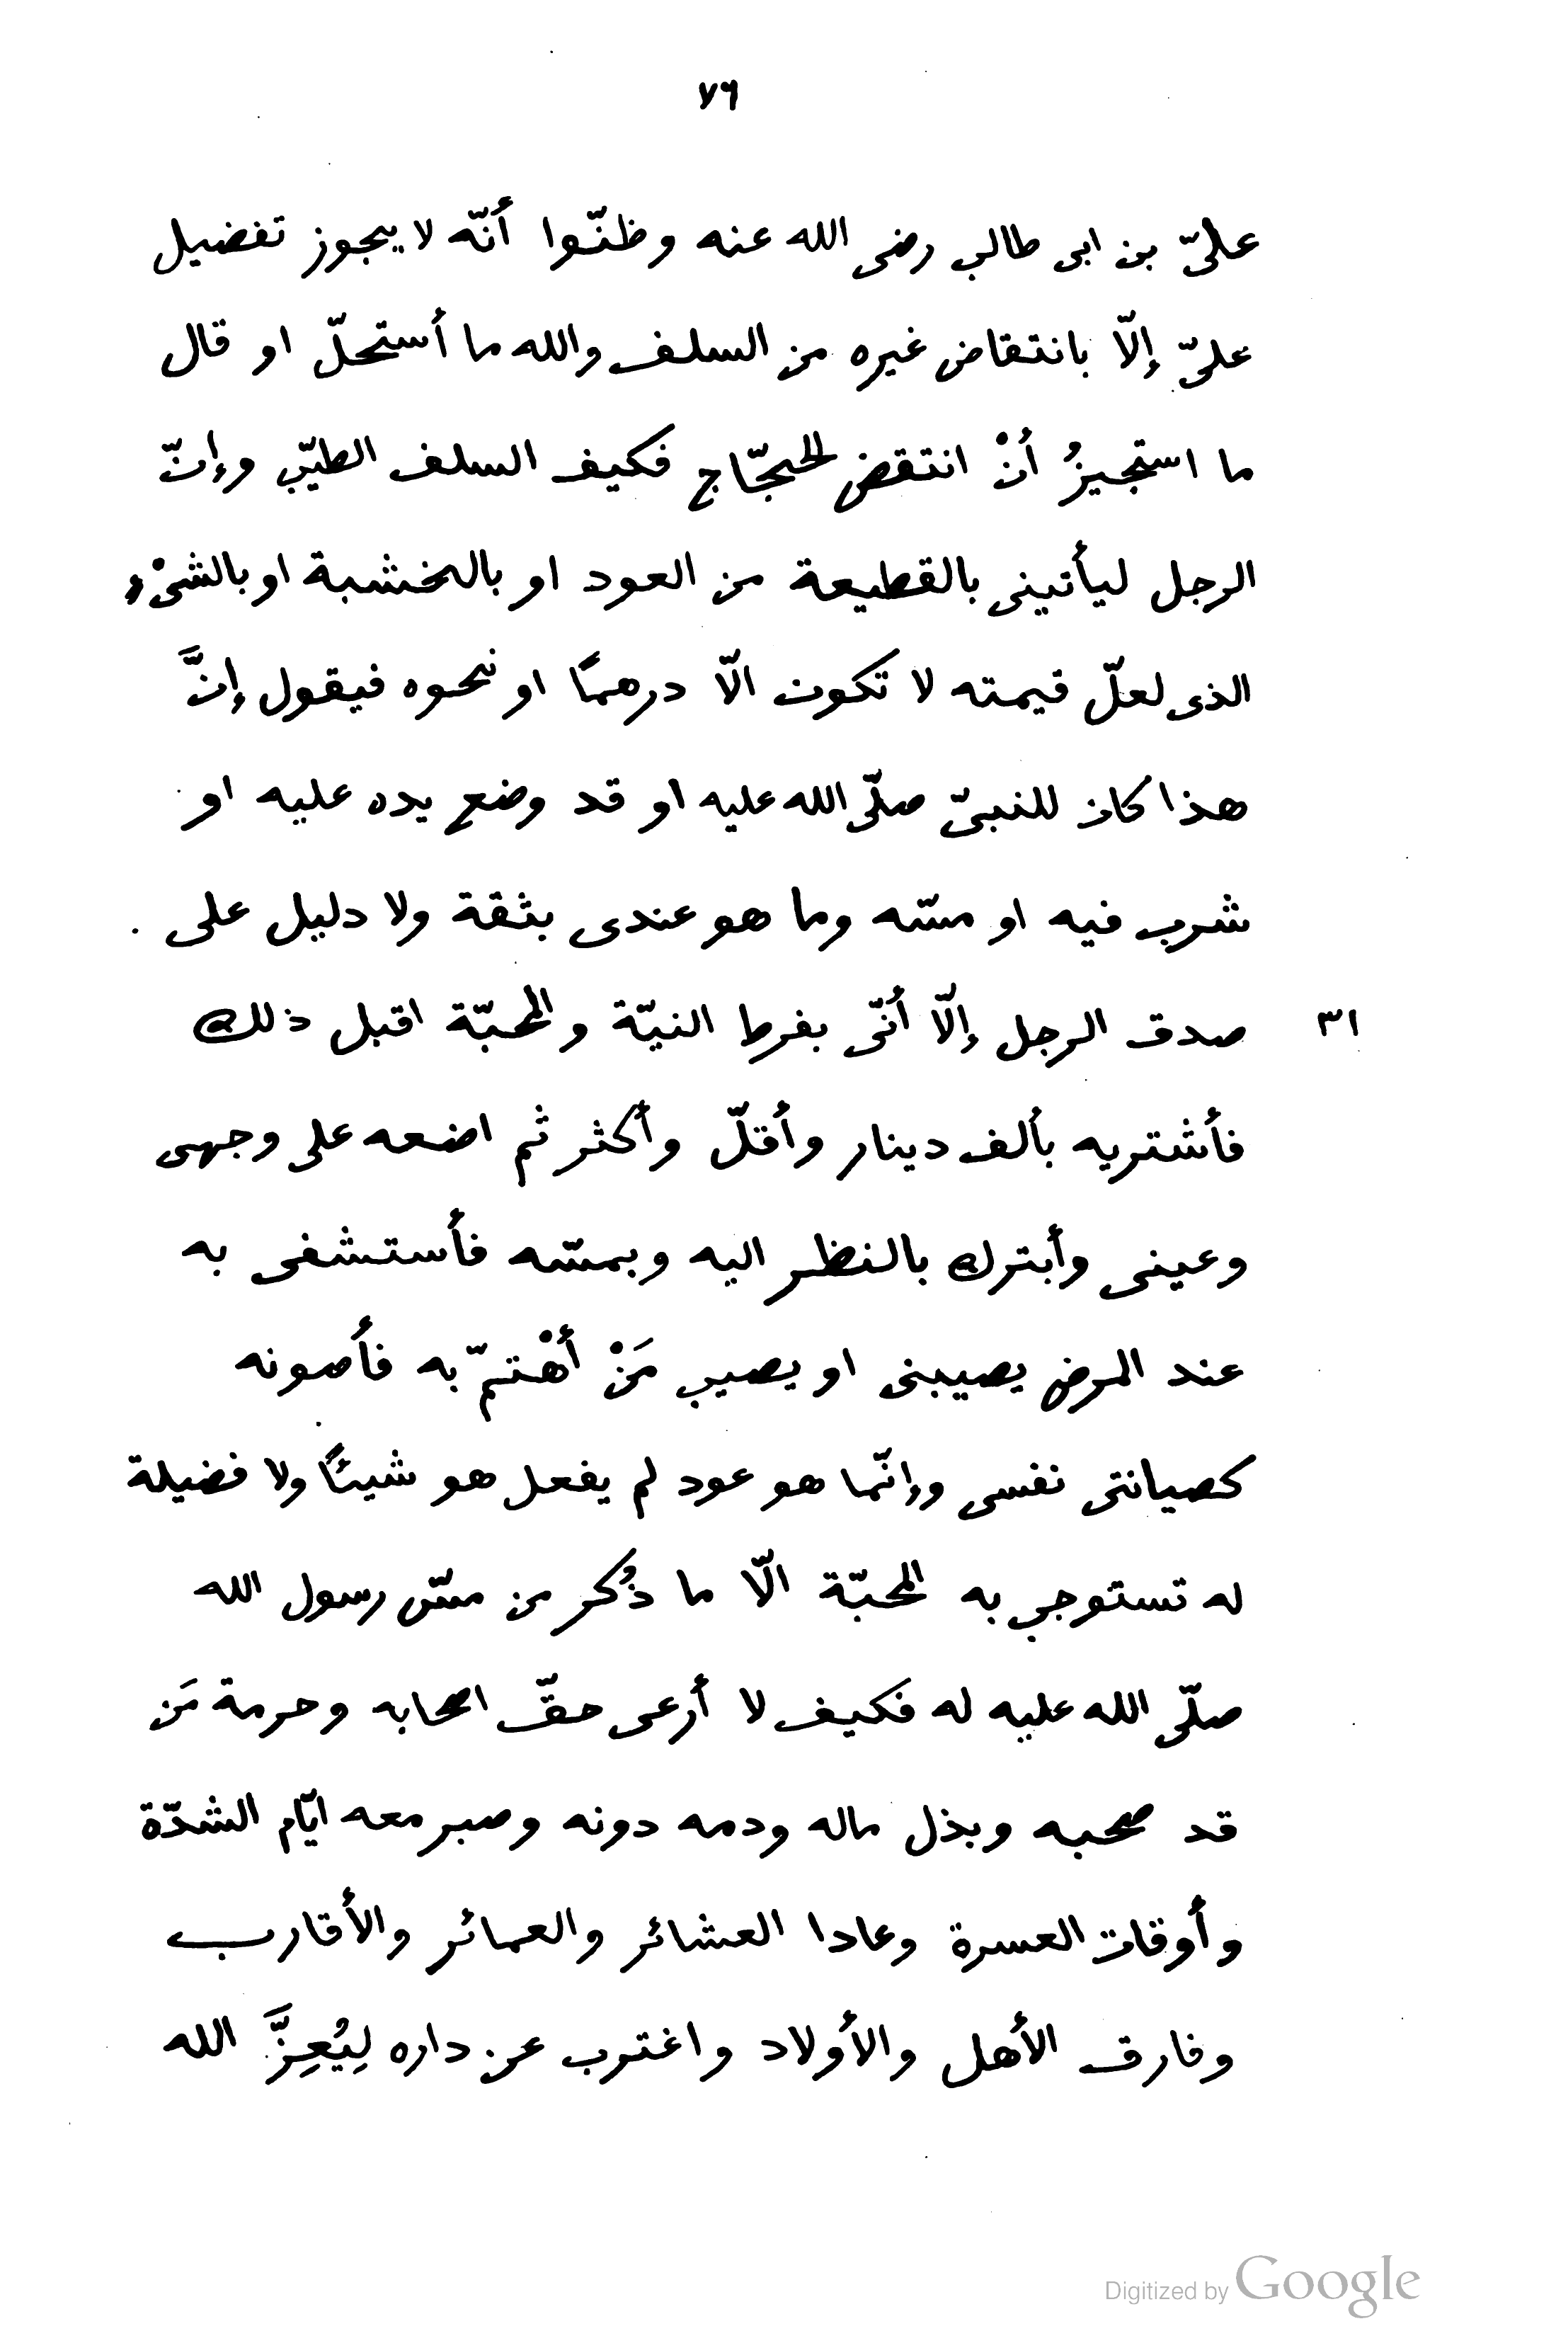 ٧٦
علىّ بن ابى طالب رضى الله عنه وظنّوا أنّه لا يجوز تفضيل
علىّ إلّا بانتقاض غيره من السلف والله ما أستحلّ او قال
ما استجيزُ أنْ انتقض الحجّاج فكيف السلف الطيّب وإنّ
الرجل ليأتينى بالقطيعة من العود او بالخشبة او بالشىْء
الذى لعلّ قيمته لا تكون الّا درهمًا او نحوه فيقول إنَّ
هذا كان للنبىّ صلّى الله عليه او قد وضع يده عليه او
شرب فيه او مسّه وما هو عندى بثقة ولا دليل على
صدق الرجل إلّا أنّى بفرط النيّة والمحبّة اقبل ذلك
٣١
فأشتريه بألف دينار وأقلّ وأكثر ثم اضعه على وجهى
وعينى وأبترك بالنظر اليه وبمسّه فأستشفى به
عند المرض يصيبنى او يصيب مَنْ أهْتمّ به فأصونه
كصيانتى نفسى وإنّما هو عود لم يفعل هو شيئًا ولا فضيلة
له تستوجب به المحبّة الّا ما ذُكر من مسّ رسول الله
صلّى الله عليه له فكيف لا أرعى حقّ اصحابه وحرمة مَن
قد صحبه وبذل ماله ودمه دونه وصبر معه ايّام الشدّة
وأوقات العسرة وعادا العشائر والعمائر والأقارب
وفارق الأهل والأولاد واغترب عن داره لِيُعِزَّ الله
Digitized by Google